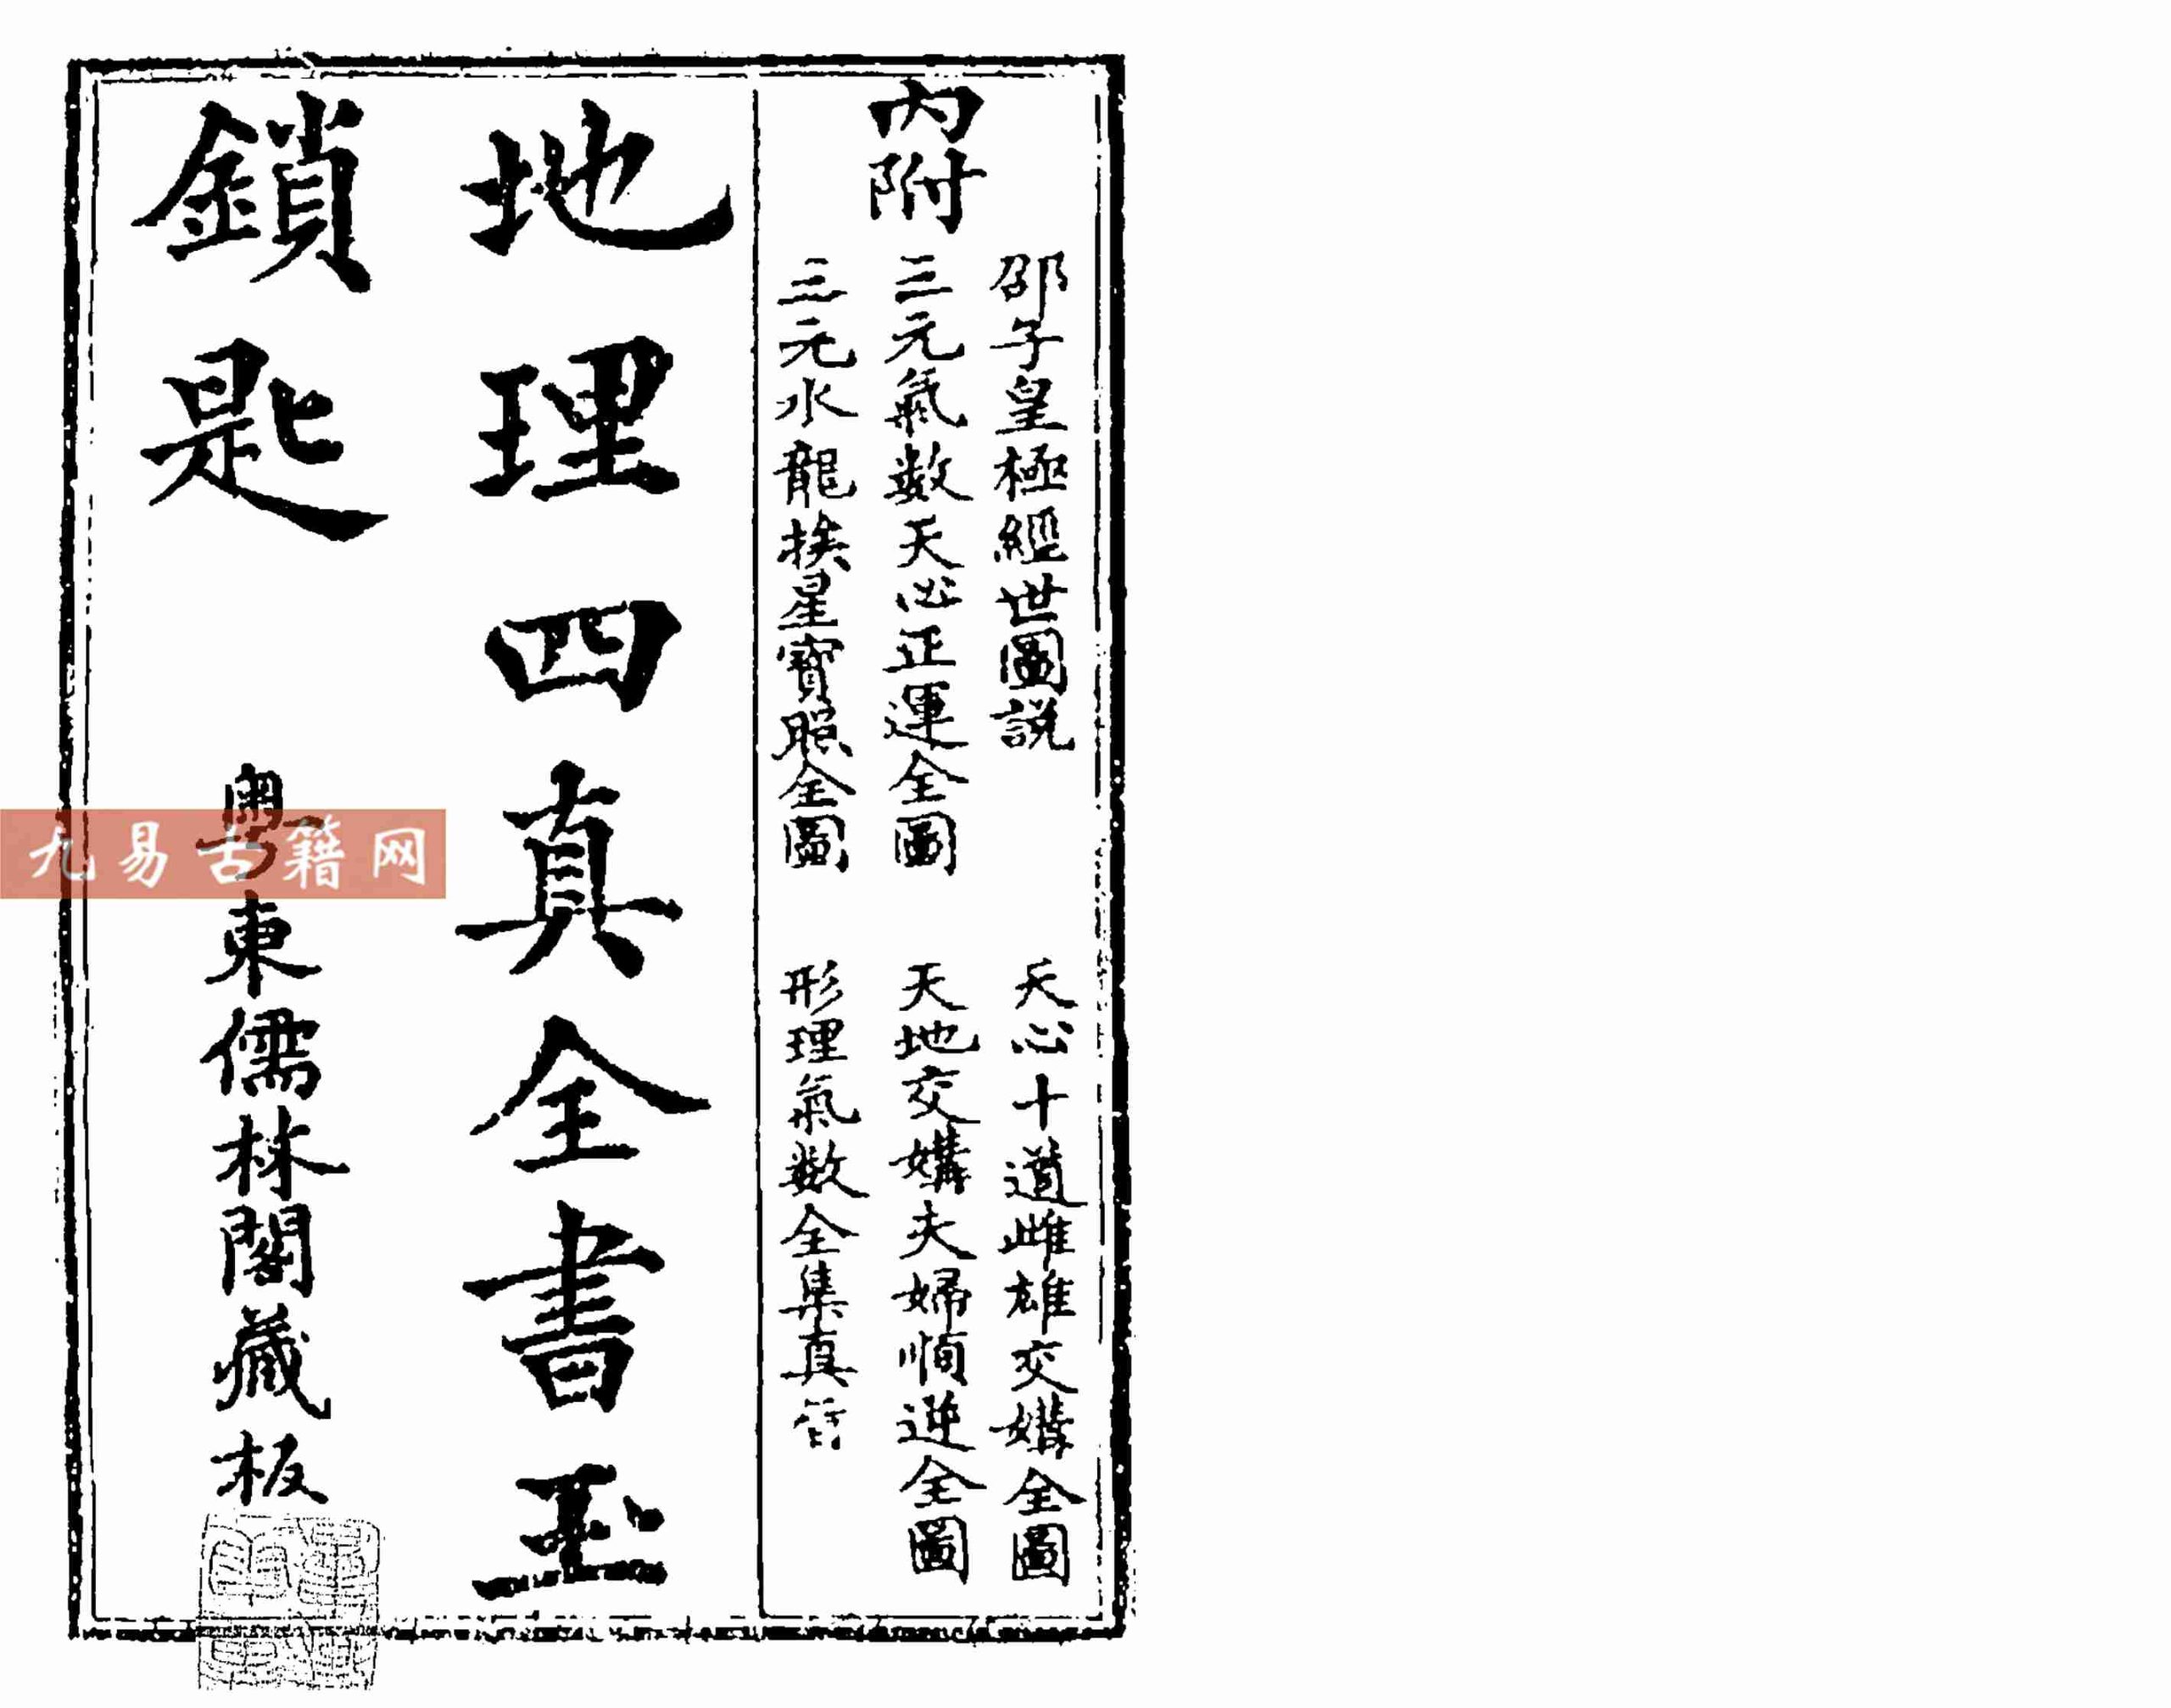 內附
邵子皇極經世圖說
天心十道雌雄交媾全圖
三元氣數天心正運全圖
天地交媾夫婦順逆全圖
三元水龍挨星寶照全圖
形理氣數全集真旨
地理四真全書玉
鎖匙
粵東儒林閣藏板
九易古籍网